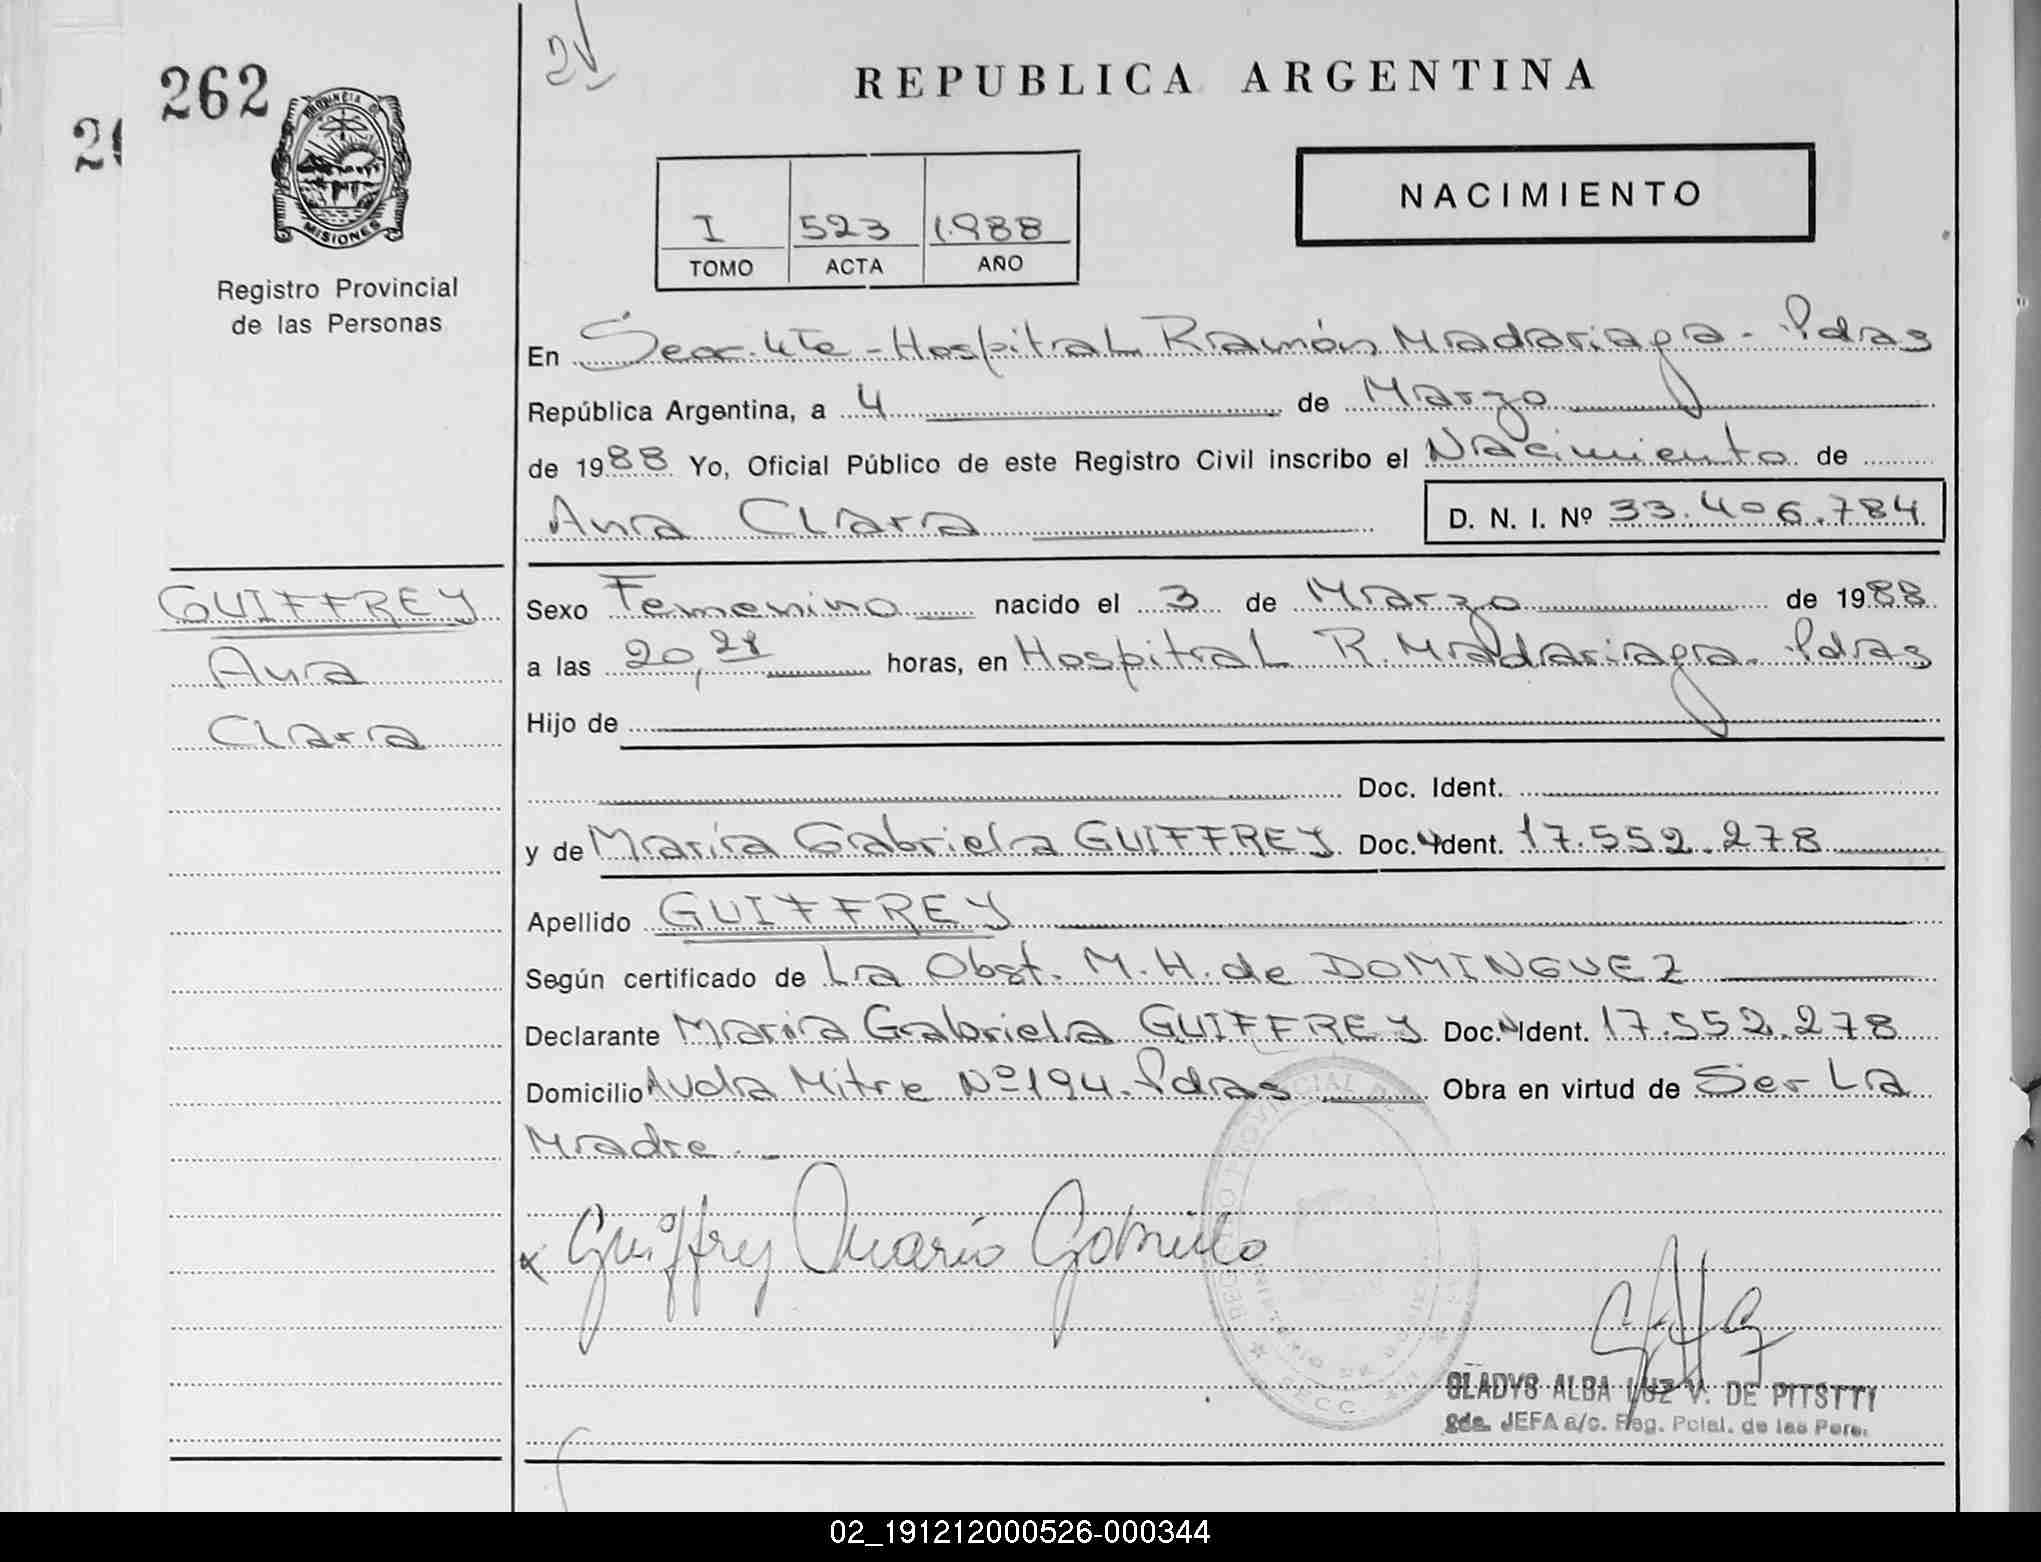 262
2
REPUBLICA ARGENTINA
PROVINCIA DE
MISIONES
Registro Provincial
de las Personas
NACIMIENTO
I 523 1.988
TOMO ACTA AÑO
En Secc. 4te - Hospital Ramón Madariaga - Pdas
República Argentina, a 4 de Marzo
de 1988 Yo, Oficial Público de este Registro Civil inscribo el Nacimiento de
Ana Clara D. N. I. Nº 33.406.784
GUIFFREY
Ana
Clara
Sexo Femenino nacido el 3 de Marzo de 1988
a las 20,28 horas, en Hospital R. Madariaga - Pdas
Hijo de
Doc. Ident.
y de María Gabriela GUIFFREY Doc. Ident. 17.552.278
Apellido GUIFFREY
Según certificado de La Obst. M.H. de DOMINGUEZ
Declarante María Gabriela GUIFFREY Doc. Ident. 17.552.278
Domicilio Avda Mitre Nº 194 - Pdas Obra en virtud de Ser La
Madre.-
x Guiffrey María Gabriela
GLADYS ALBA LUZ V. DE PITSTTI
JEFA a/c. Reg. Pcial. de las Pers.
02_191212000526-000344